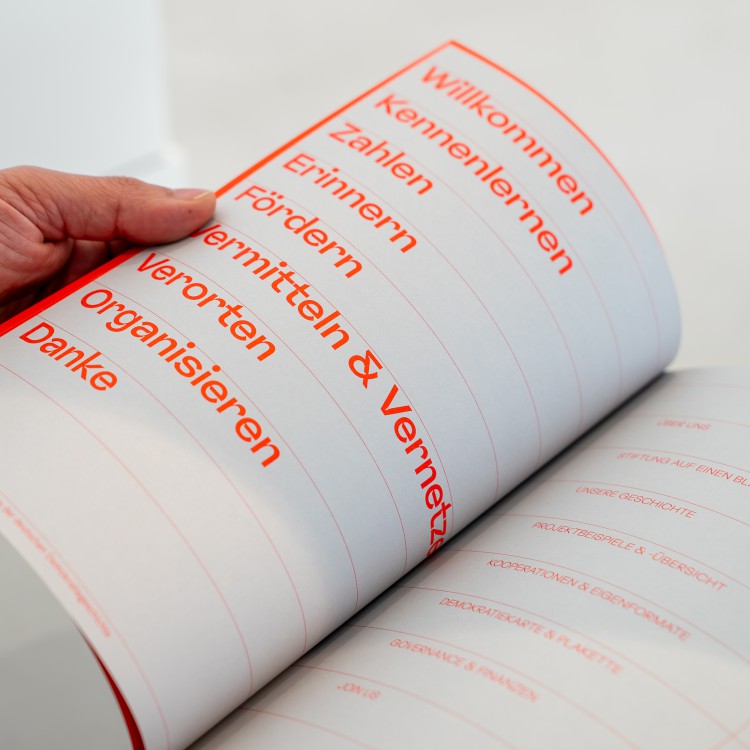 Willkommen
Kennenlernen
Zahlen
Erinnern
Fördern
Vermitteln & Vernetze
Verorten
Organisieren
Danke
ÜBER UNS
STIFTUNG AUF EINEN BLI
UNSERE GESCHICHTE
PROJEKTBEISPIELE & -ÜBERSICHT
KOOPERATIONEN & EIGENFORMATE
DEMOKRATIEKARTE & PLAKETTE
GOVERNANCE & FINANZEN
JOIN US
der deutschen Demokratiegeschichte